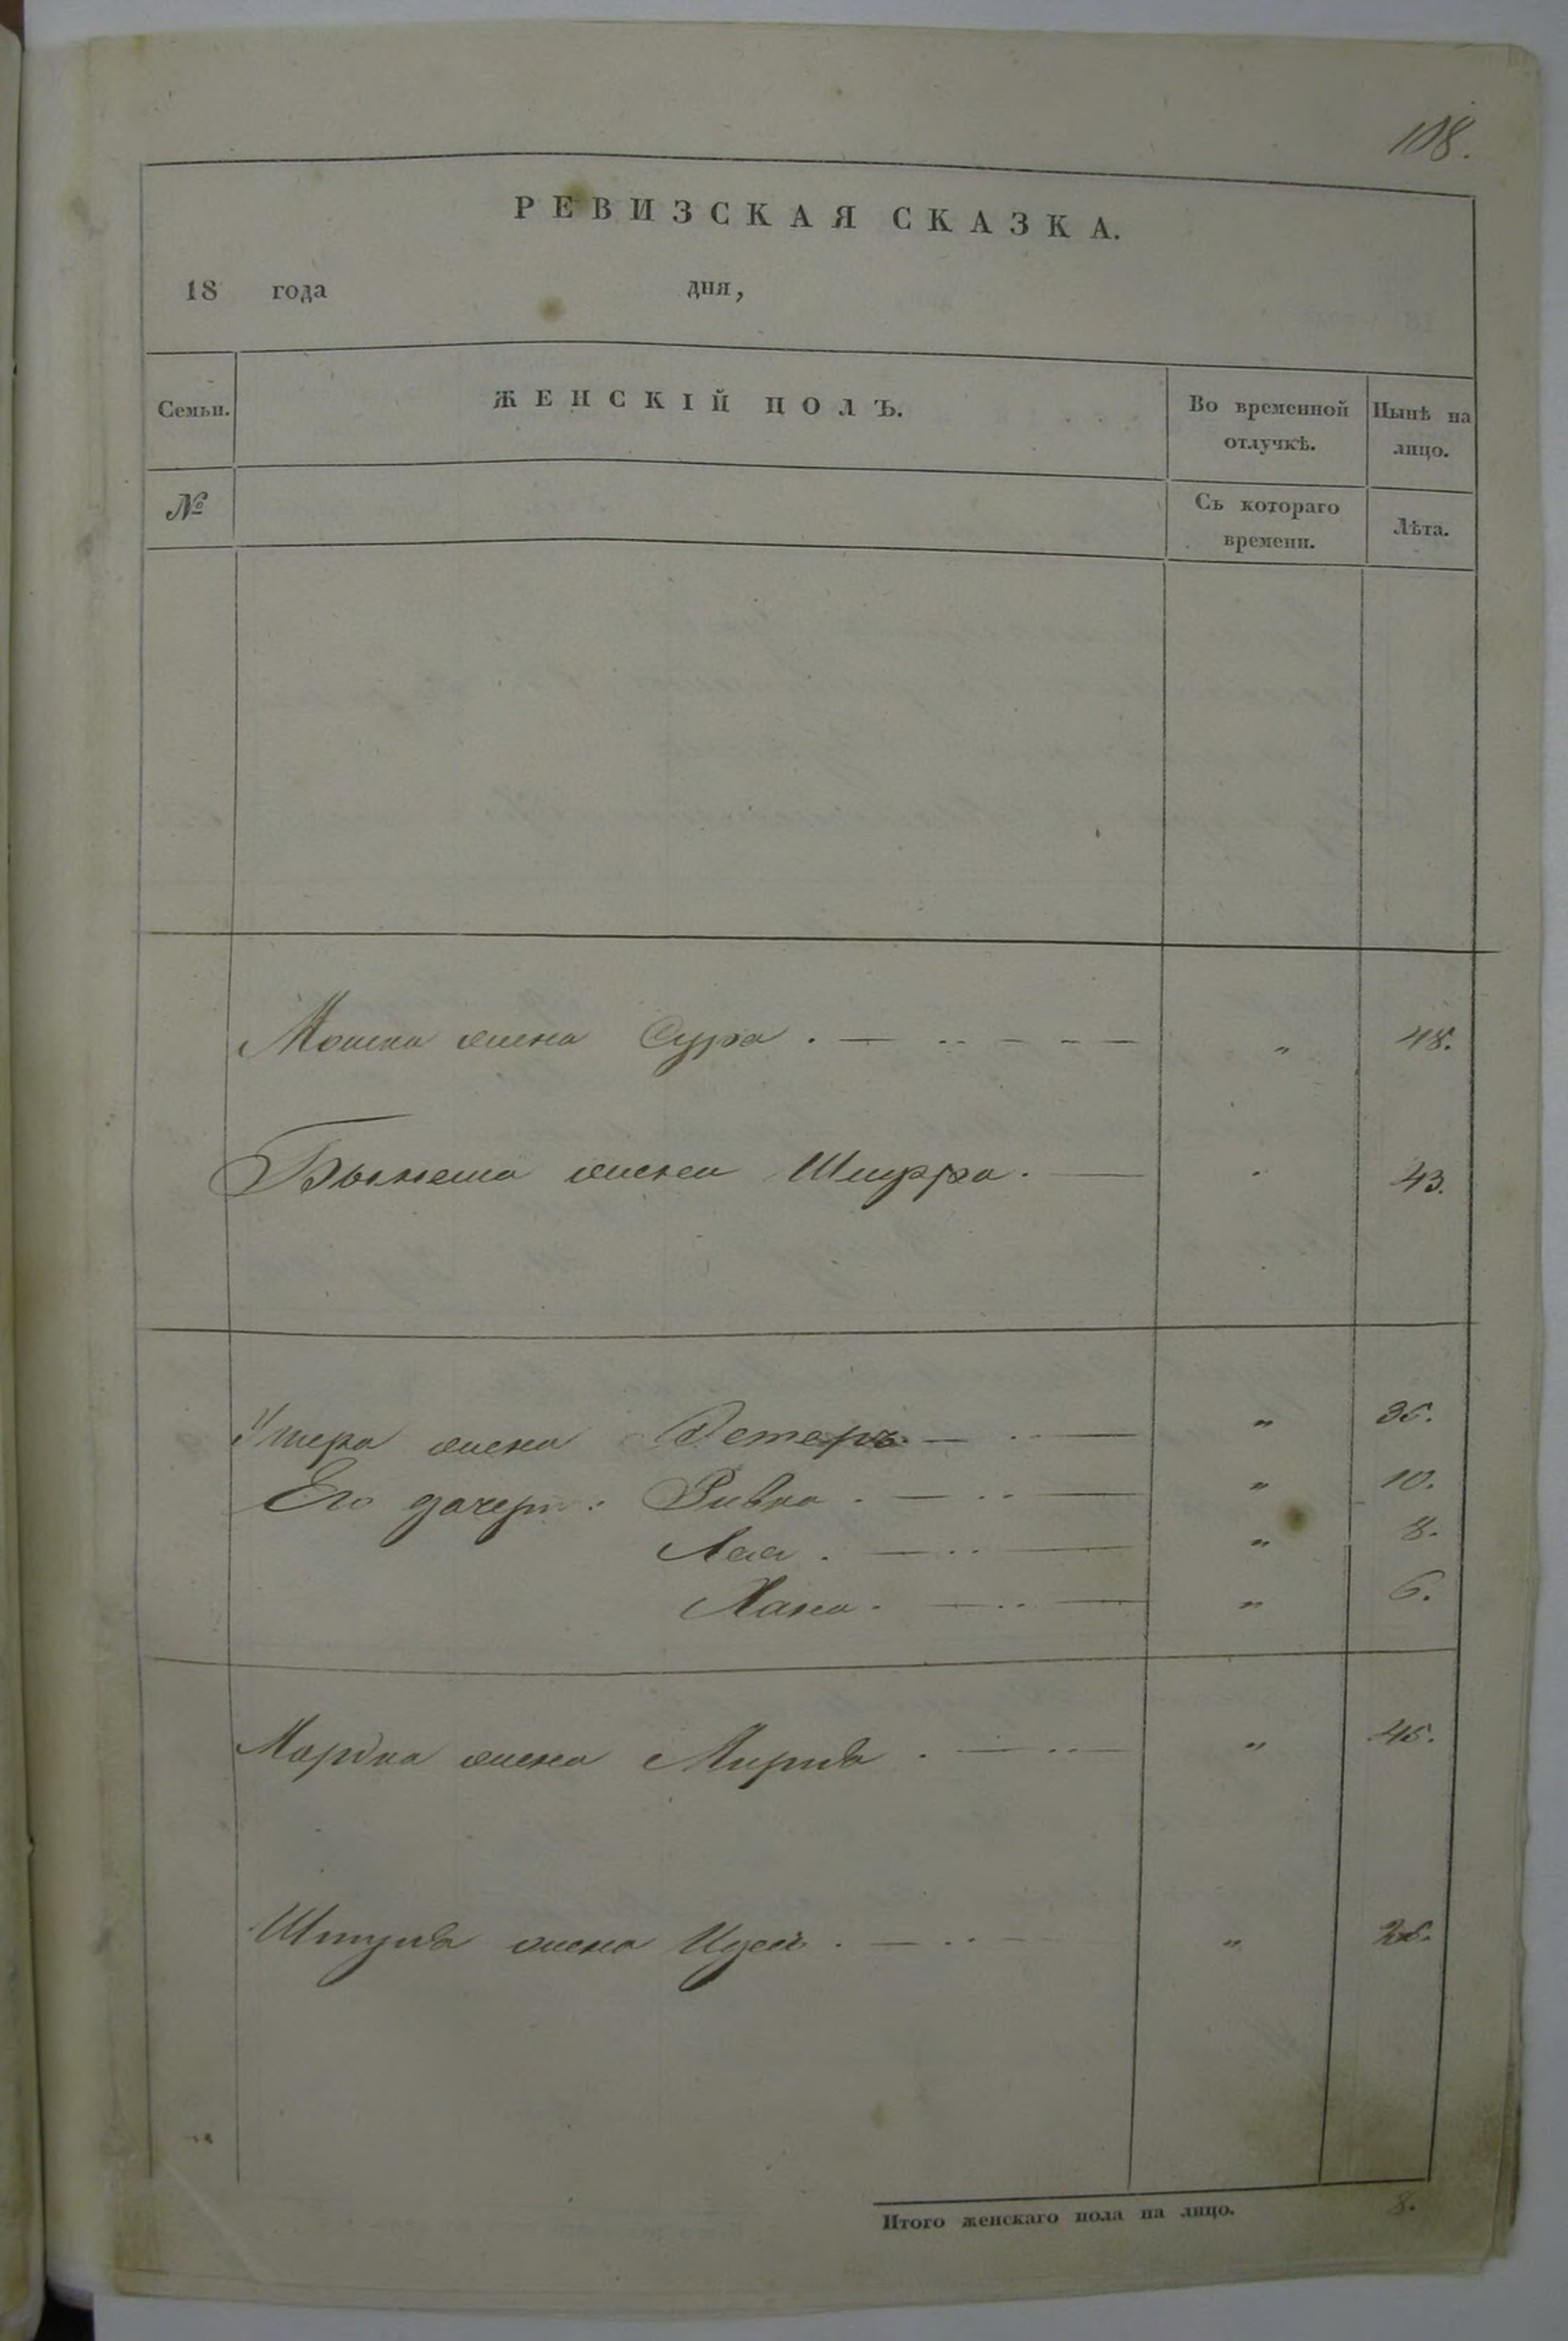 108.
РЕВИЗСКАЯ СКАЗКА.
18 года дня,
Семьи. ЖЕНСКІЙ ПОЛЪ. Во временной отлучкѣ. Нынѣ на лицо.
№ Съ котораго времени. Лѣта.
Мошка жена Сура . — „ 48.
жена Шифра . — 43.
жена Естеръ — „ 35.
Его дочери: Ривка . — „ 10.
Лея . — „ 8.
Хана . — „ 6.
Мордка жена — „ 45.
жена — „
Итого женскаго пола на лицо. 8.